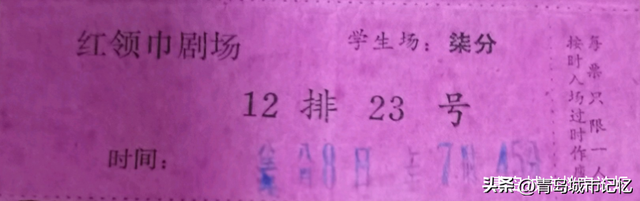 红领巾剧场
学生场：柒分
12 排 23 号
时间：
8日 7 45分
每票只限一人
按时入场过时作
头条 @青岛城市记忆